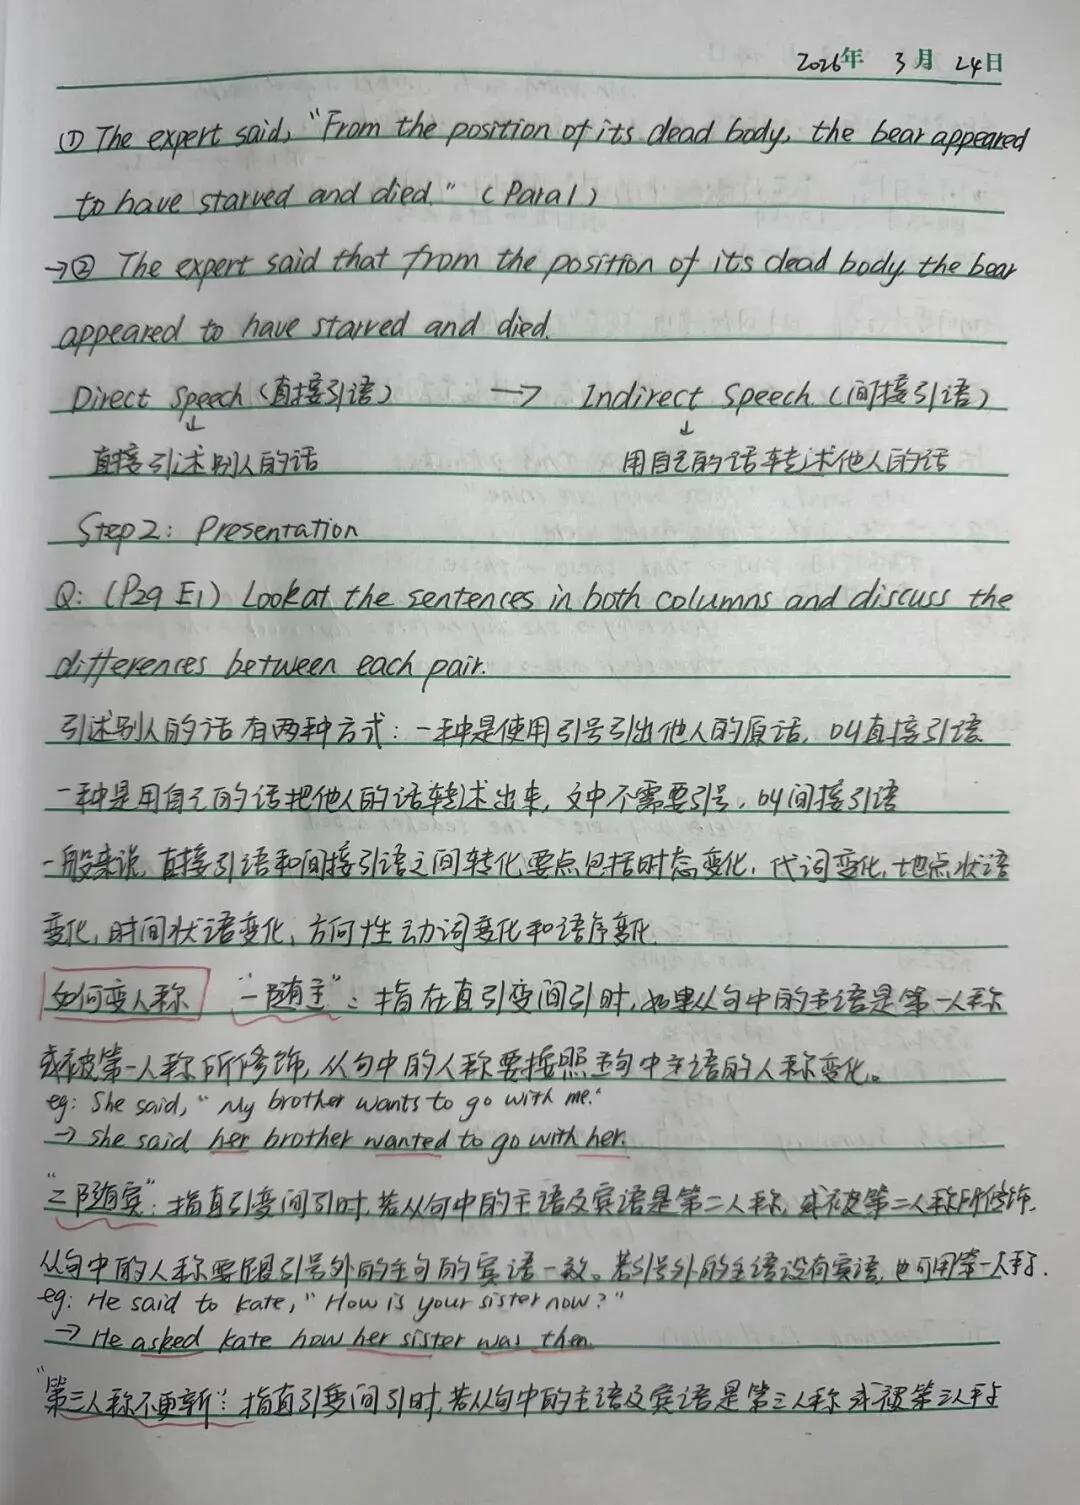 2026年 3月 24日
① The expert said, "From the position of its dead body, the bear appeared
to have starved and died." (Para 1)
→② The expert said that from the position of its dead body the bear
appeared to have starved and died.
Direct Speech (直接引语) → Indirect Speech (间接引语)
↓ ↓
直接引述别人的话 用自己的话转述他人的话
Step 2: Presentation
Q: (P29 E1) Look at the sentences in both columns and discuss the
differences between each pair.
引述别人的话有两种方式:一种是使用引号引出他人的原话,叫直接引语
一种是用自己的话把他人的话转述出来,文中不需要引号,叫间接引语
一般来说,直接引语和间接引语之间转化要点包括时态变化,代词变化,地点状语
变化,时间状语变化、方向性动词变化和语序变化.
如何变人称 "一随主":指在直引变间引时,如果从句中的主语是第一人称
或被第一人称所修饰,从句中的人称要按照主句中主语的人称变化。
eg: She said, "My brother wants to go with me."
→ she said her brother wanted to go with her.
"二随宾":指直引变间引时,若从句中的主语及宾语是第二人称,或被第二人称所修饰,
从句中的人称要跟引号外的主句的宾语一致。若引号外的主语没有宾语,也可用第一人称.
eg: He said to Kate, "How is your sister now?"
→ He asked Kate how her sister was then.
"第三人称不更新":指直引变间引时,若从句中的主语及宾语是第三人称或被第三人称